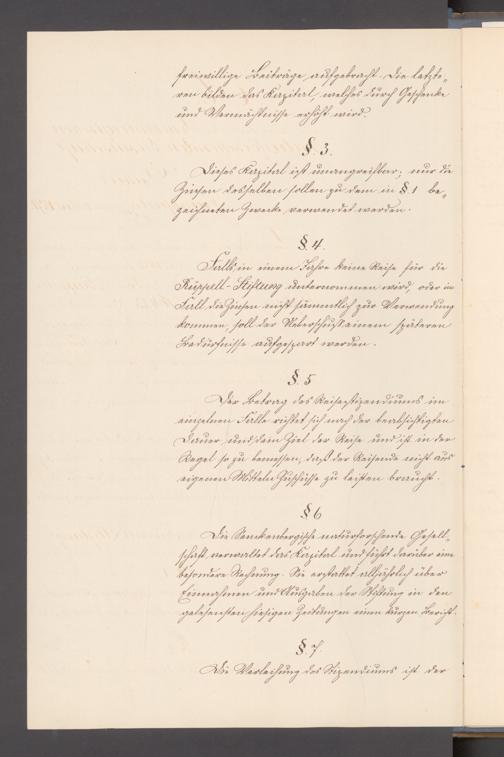 freiwillige Beiträge aufgebracht. Die letzte-
ren bilden das Kapital, welches durch Geschenke
und Vermächtnisse erhöht wird.
§ 3.
Dieses Kapital ist unangreifbar; nur die
Zinsen desselben sollen zu dem in § 1 be-
zeichneten Zwecke verwendet werden.
§. 4.
Falls in einem Jahre keine Reise für die
Rüppell-Stiftung unternommen wird, oder im
Fall die Zinsen nicht sämmtlich zur Verwendung
kommen, soll der Ueberschuß einem späteren
Bedürfnisse aufgespart werden.
§. 5
Der Betrag des Reisestipendiums im
einzelnen Falle richtet sich nach der beabsichtigten
Dauer und dem Ziel der Reise und ist in der
Regel so zu bemessen, daß der Reisende nicht aus
eigenen Mitteln Zuschüsse zu leisten braucht.
§ 6
Die Senckenbergische naturforschende Gesell-
schaft verwaltet das Kapital und führt darüber eine
besondere Rechnung. Sie erstattet alljährlich über
Einnahmen und Ausgaben der Stiftung in den
gelesensten hiesigen Zeitungen einen kurzen Bericht.
§. 7.
Die Verleihung des Stipendiums ist der